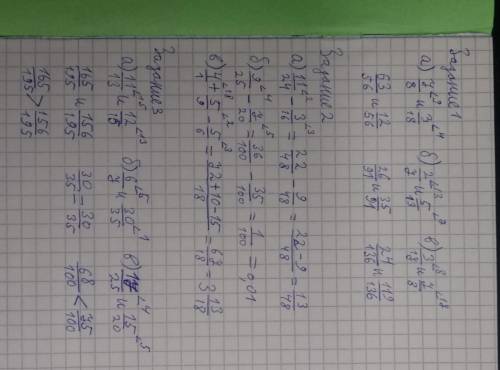 Задание 1
б) 2/7 ⌊13 и 5/13 ⌊7 в) 3/17 ⌊8 и 7/8
63/56 и 12/56 26/91 и 35/91 24/136 и 119/136
Задание 2
а) 11/24 ⌊2 - 3/16 ⌊3 = 22/48 - 9/48 = 22-9/48 = 13/48
б) 9/25 ⌊4 - 7/20 ⌊5 = 36/100 - 35/100 = 1/100 = 0,01
в) 4/1 ⌊18 + 5/9 ⌊2 - 5/6 ⌊3 = 72+10-15/18 = 67/18 = 3 13/18
Задание 3
а) 11/13 ⌊15 и б) 6/7 ⌊5 и 30/35 ⌊1 в) 17/25 ⌊4 и 15/20 ⌊5
165/195 и 156/195 30/35 = 30/35 68/100 < 75/100
165/195 > 156/195